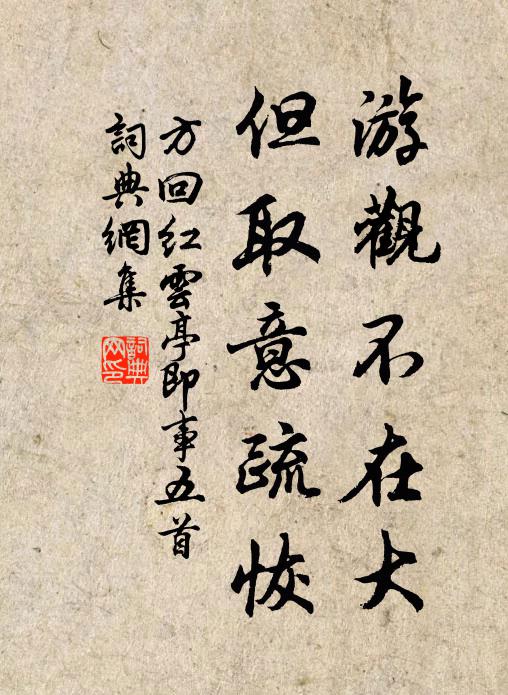 游觀不在大
但取意疏恢
方回紅雲亭即事五首
詞典網集
詞典網印